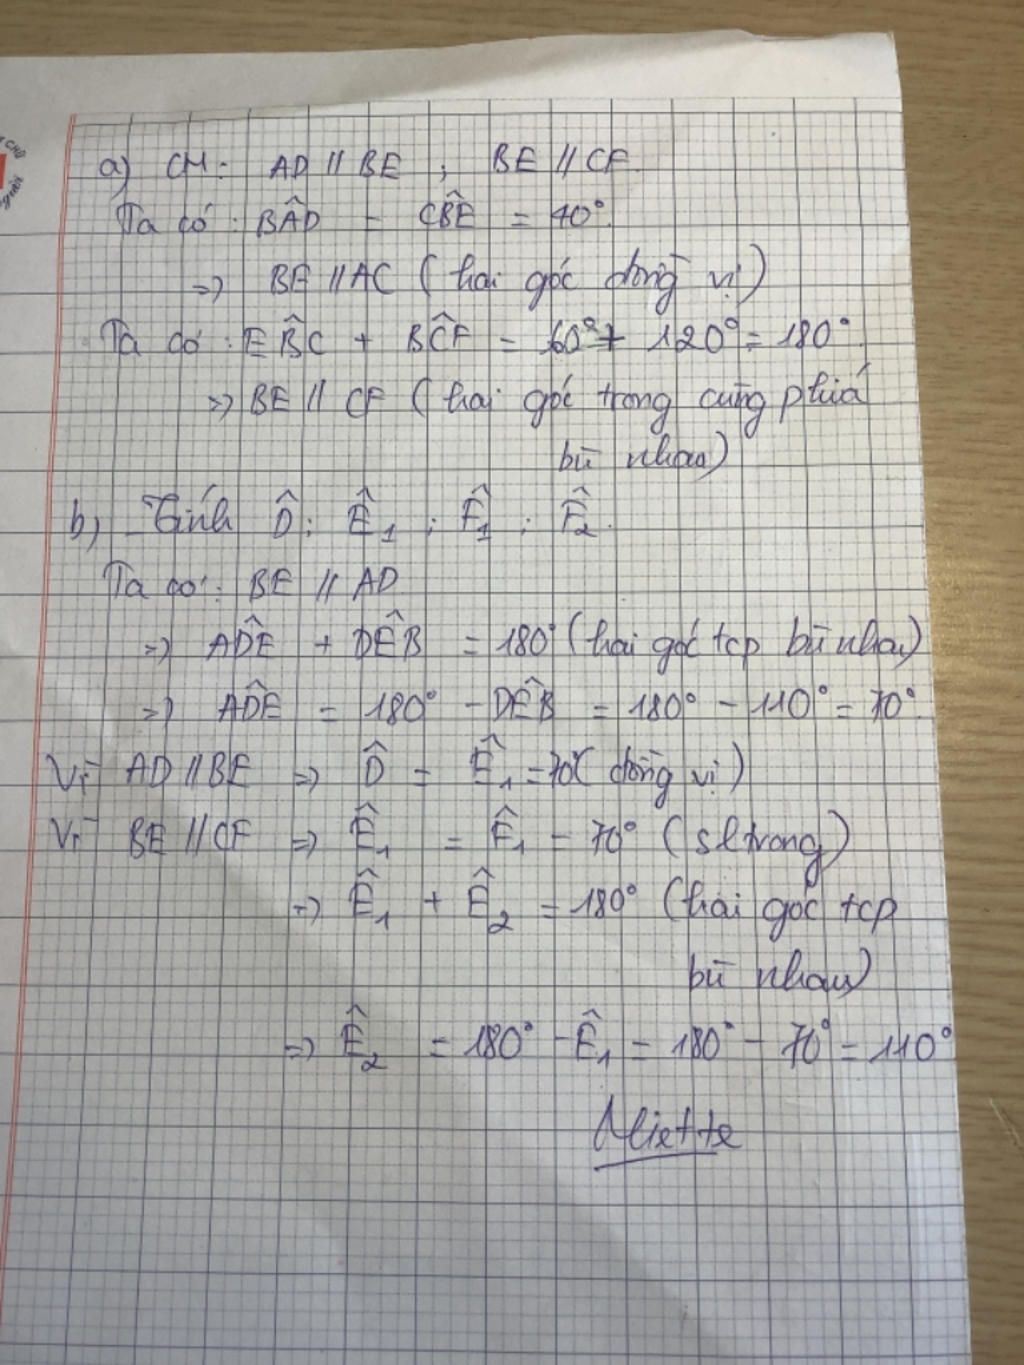 a) CM: AD // BE ; BE // CF.
Ta có: BÂD = CB̂E = 40°.
=> BE // AC (hai góc đồng vị)
Ta có: EB̂C + BĈF = 60° + 120° = 180°.
=> BE // CF (hai góc trong cùng phiá
bù nhau)
b) Tính D̂ ; Ê1 ; F̂1 ; F̂2.
Ta có: BE // AD
=> AD̂E + DÊB = 180° (hai góc tcp bù nhau)
=> AD̂E = 180° - DÊB = 180° - 110° = 70°.
Vì AD // BE => D̂ = Ê1 = 70° (đồng vị)
Vì BE // CF => Ê1 = F̂1 = 70° (sl trong)
=> Ê1 + F̂2 = 180° (hai góc tcp
bù nhau)
=> F̂2 = 180° - Ê1 = 180° - 70° = 110°